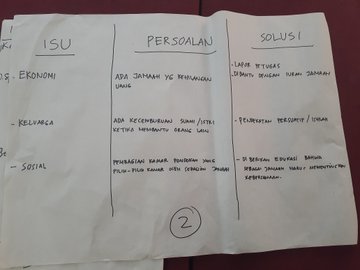 ISU
PERSOALAN
SOLUSI
- EKONOMI
ADA JAMAAH YG KEHILANGAN
UANG
- LAPOR PETUGAS
- DIBANTU DENGAN IURAN JAMAAH
- KELUARGA
ADA KECEMBURUAN SUAMI/ISTRI
KETIKA MEMBANTU ORANG LAIN
- PENDEKATAN PERSUATIF / ISHLAH
- SOSIAL
PEMBAGIAN KAMAR PONDOKAN YANG
PILIH-PILIH KAMAR OLEH SEBAGIAN JAMAAH
- DI BERIKAN EDUKASI BAHWA
SEBAGAI JAMAAH HARUS MEMENTINGKAN
KEBERSAMAAN.
2